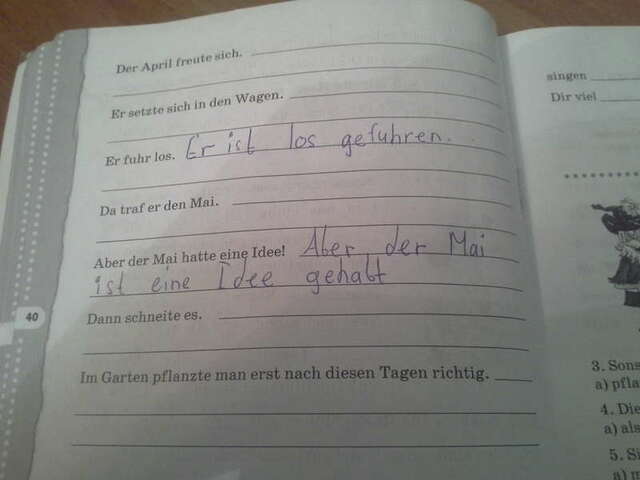 Der April freute sich.
Er setzte sich in den Wagen.
Er fuhr los. Er ist los gefuhren.
Da traf er den Mai.
Aber der Mai hatte eine Idee! Aber der Mai
ist eine Idee gehabt
Dann schneite es.
40
Im Garten pflanzte man erst nach diesen Tagen richtig.
singen
Dir viel
3. Sons
a) pfla
4. Die
a) als
5. Si